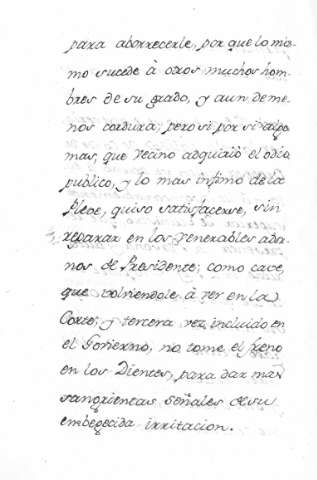 para aborrecerle, por que lo mis-
mo sucede à otros muchos hom-
bres de su grado, y aun de me-
nos cordura; pero si por si algo
mas, que vecino adquirió el odio
publico, y lo mas infimo de la
Plebe, quiso satisfacerse, sin
reparar en los venerables ador-
nos de Presidente; como cave,
que volviendole à ver en la
Corte, y tercera vez incluido en
el Govierno, no tome el freno
en los Dientes, para dar mas
sangrientas señales de su
embegecida irritacion.